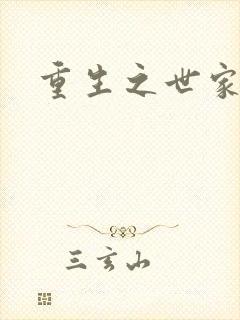 重生之世家
三玄山